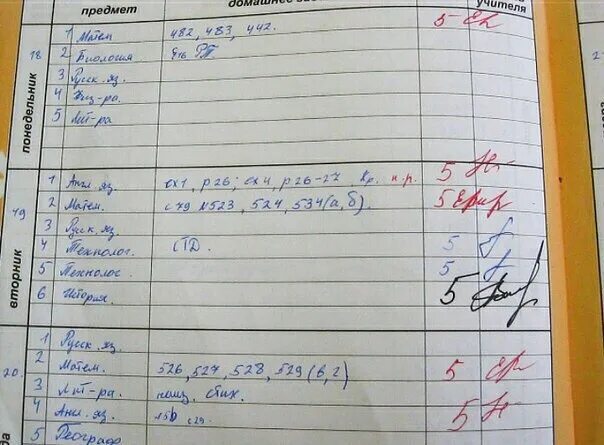 предмет домашнее учителя
18 понедельник
1 Матем 482, 483, 442. 5
2 Биология РТ
3 Русск. яз.
4 Физ-ра.
5 Лит-ра
19 вторник
1 Англ. яз. сх1, р26; сх4, р26-27 Кр. н.р. 5
2 Матем. с79 №523, 524, 534(а,б). 5
3 Русск. яз.
4 Технолог. СТД. 5
5 Технолос 5
6 История. 5
20.
1 Русск. яз
2 Матем. 526, 527, 528, 529(в,г) 5
3 Лит-ра. стих.
4 Англ. яз. с29. 5
5 Географ